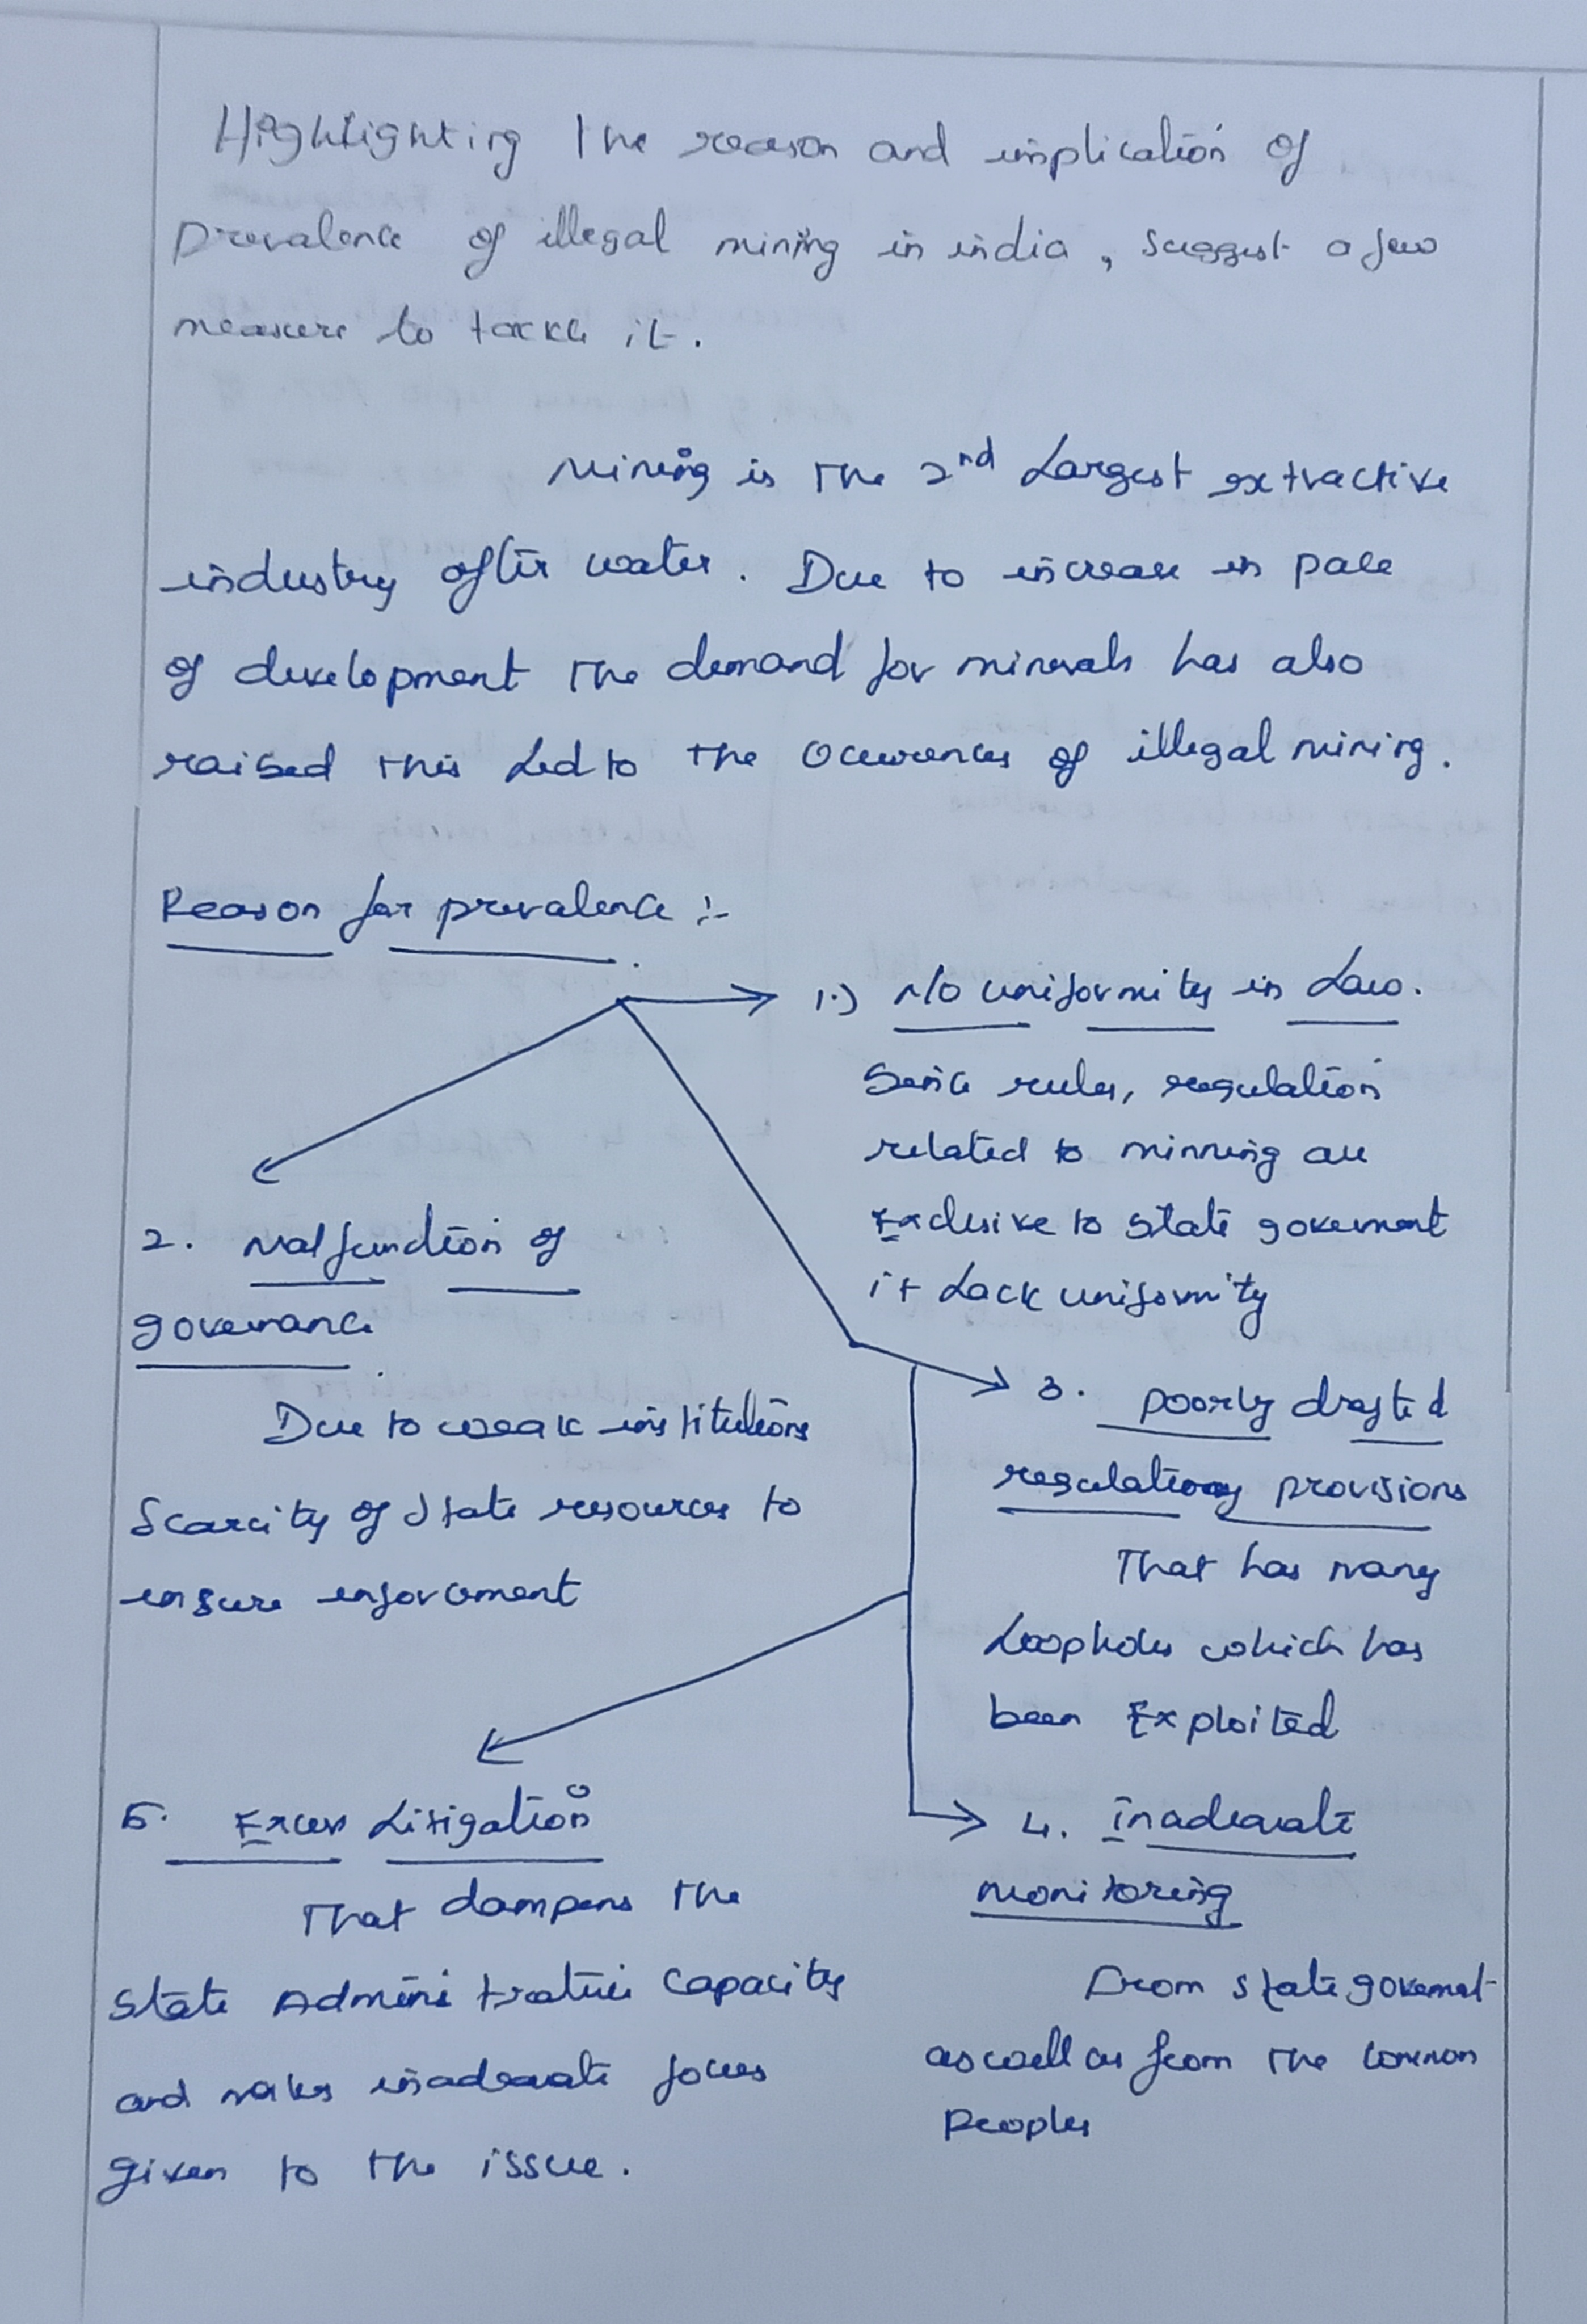 Highlighting the reason and implication of
prevalence of illegal mining in india, suggest a few
measure to tackle it.
Mining is the 2nd Largest extractive
industry after water. Due to increase in pace
of development the demand for minerals has also
raised this Led to the Occurences of illegal mining.
Reason for prevalence :-
1.) No uniformity in Law.
Since rules, regulation
related to minning are
Exclusive to state goverment
it Lack uniformity
2. Malfunction of
governance
Due to weak institutions
Scarcity of State resources to
ensure enforcement
3. poorly drafted
regulatory provisions
That has many
Loopholes which has
been Exploited
4. Inadequate
monitoring
From state government
as well as from the common
Peoples
5. Excess Litigation
That dampens the
State Adminitrative Capacity
and makes inadequate focus
given to the issue.